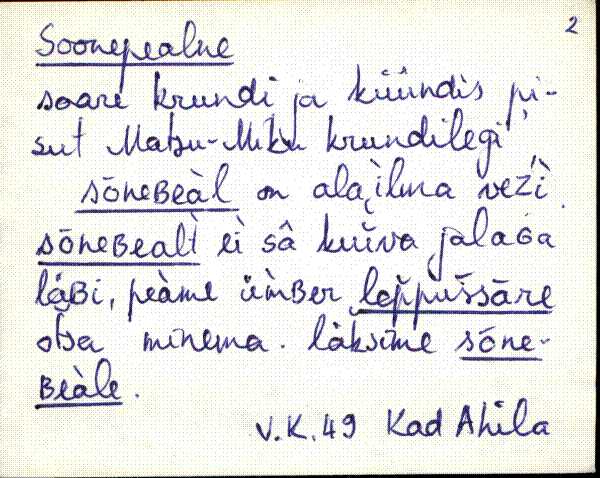 2
Soonepealne
saare krundi ja küündis pi-
sut Matsu-Mihkli krundilegi
sōneʙeàl on ala ilma vezì
sōneʙealt ei sâ kuìva jalaɢa
läʙi, peàme ümʙer leppüssāre
otsa minema. läksìme sōne-
ʙeàle.
V.K. 49 Kad Ahila